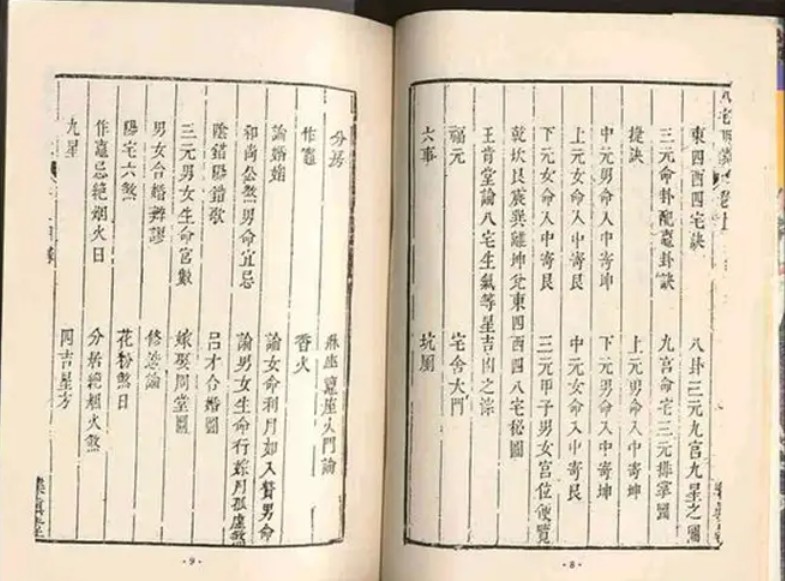 東四西四宅訣　八卦三元九宮九星之圖
三元命卦配竈卦訣　九宮命宅三元排掌圖
捷訣　上元男命入中寄坤
中元男命入中寄坤　下元男命入中寄坤
上元女命入中寄艮　中元女命入中寄艮
下元女命入中寄艮　三元甲子男女宮位便覽
乾坎艮震巽離坤兌東四西四八宅秘圖
王肯堂論八宅生氣等星吉凶之
福元　宅舍大門
六事　坑
·8·
分居　牀座竈座大門論
作竈　香火
論婚姻　論女命利月如入贅男命
和尚公煞男命宜忌　論男女生命行嫁月孤虛煞
陰錯陽錯　呂才合婚圖
三元男女生命宮數　嫁娶周堂圖
男女合婚辨謬　修造論
陽宅六煞　花粉煞日
作竈忌絕烟火日　分居絕烟火煞
九星　四吉星方
·9·